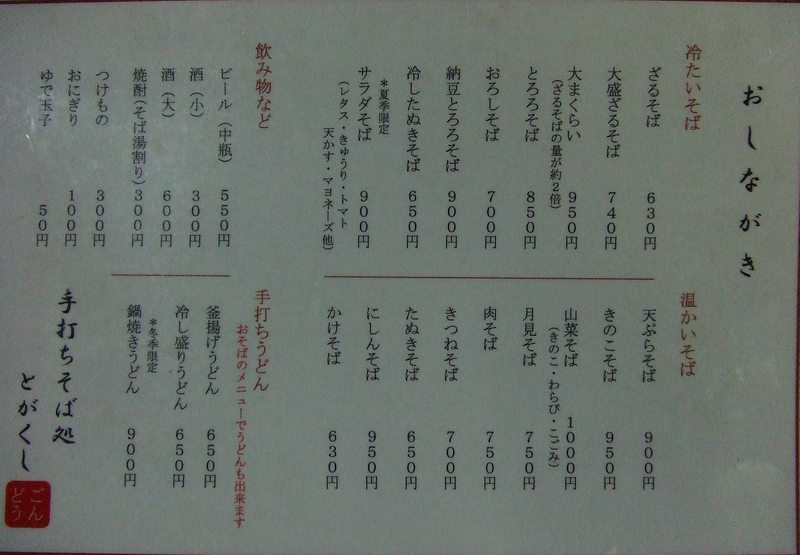 おしながき
冷たいそば
ざるそば 630円
大盛ざるそば 740円
大まくらい 950円
(ざるそばの量が約2倍)
とろろそば 850円
おろしそば 700円
納豆とろろそば 900円
冷したぬきそば 650円
*夏季限定
サラダそば 900円
(レタス・きゅうり・トマト
天かす・マヨネーズ他)
温かいそば
天ぷらそば 900円
きのこそば 950円
山菜そば 1000円
(きのこ・わらび・こごみ)
月見そば 750円
肉そば 750円
きつねそば 700円
たぬきそば 650円
にしんそば 950円
かけそば 630円
飲み物など
ビール(中瓶) 550円
酒(小) 300円
酒(大) 600円
焼酎(そば湯割り) 300円
つけもの 300円
おにぎり 100円
ゆで玉子 50円
手打ちうどん
おそばのメニューでうどんも出来ます
釜揚げうどん 650円
冷し盛りうどん 650円
*冬季限定
鍋焼きうどん 900円
手打ちそば処
とがくし
ごん
どう